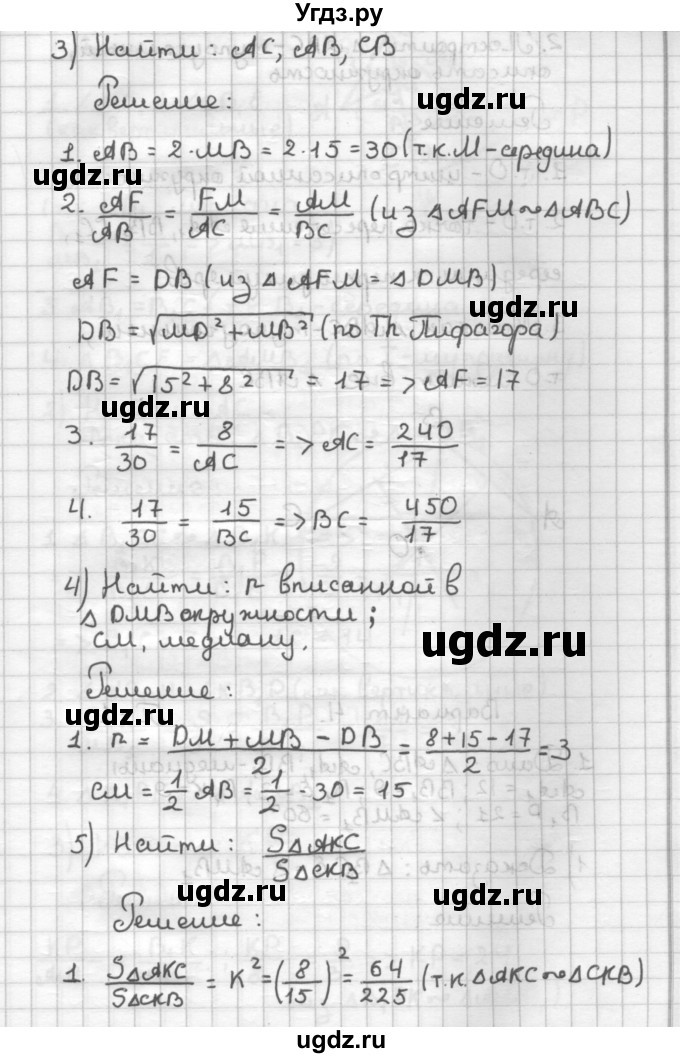 Угдз.ру
3) Найти: AC, AB, CB
ugdz.ru
Решение:
ugdz.ru
1. AB = 2·MB = 2·15 = 30 (т.к. M - середина)
2. AF/AB = FM/AC = AM/BC (из △AFM ~ △ABC)
AF = DB (из △AFM = △DMB)
ugdz.ru
DB = √(MD² + MB²) (по Th Пифагора)
DB = √(15² + 8²) = 17 => AF = 17
ugdz.ru
3. 17/30 = 8/AC => AC = 240/17
4. 17/30 = 15/BC => BC = 450/17
ugdz.ru
4) Найти: r вписанной в
△DMB окружности;
CM, медиану.
ugdz.ru
Решение:
1. r = (DM + MB - DB)/2 = (8+15-17)/2 = 3
CM = 1/2 AB = 1/2 · 30 = 15
ugdz.ru
5) Найти: S△AKC/S△CKB
ugdz.ru
Решение:
ugdz.ru
1. S△AKC/S△CKB = K² = (8/15)² = 64/225 (т.к. △AKC ~ △CKB)
ugdz.ru